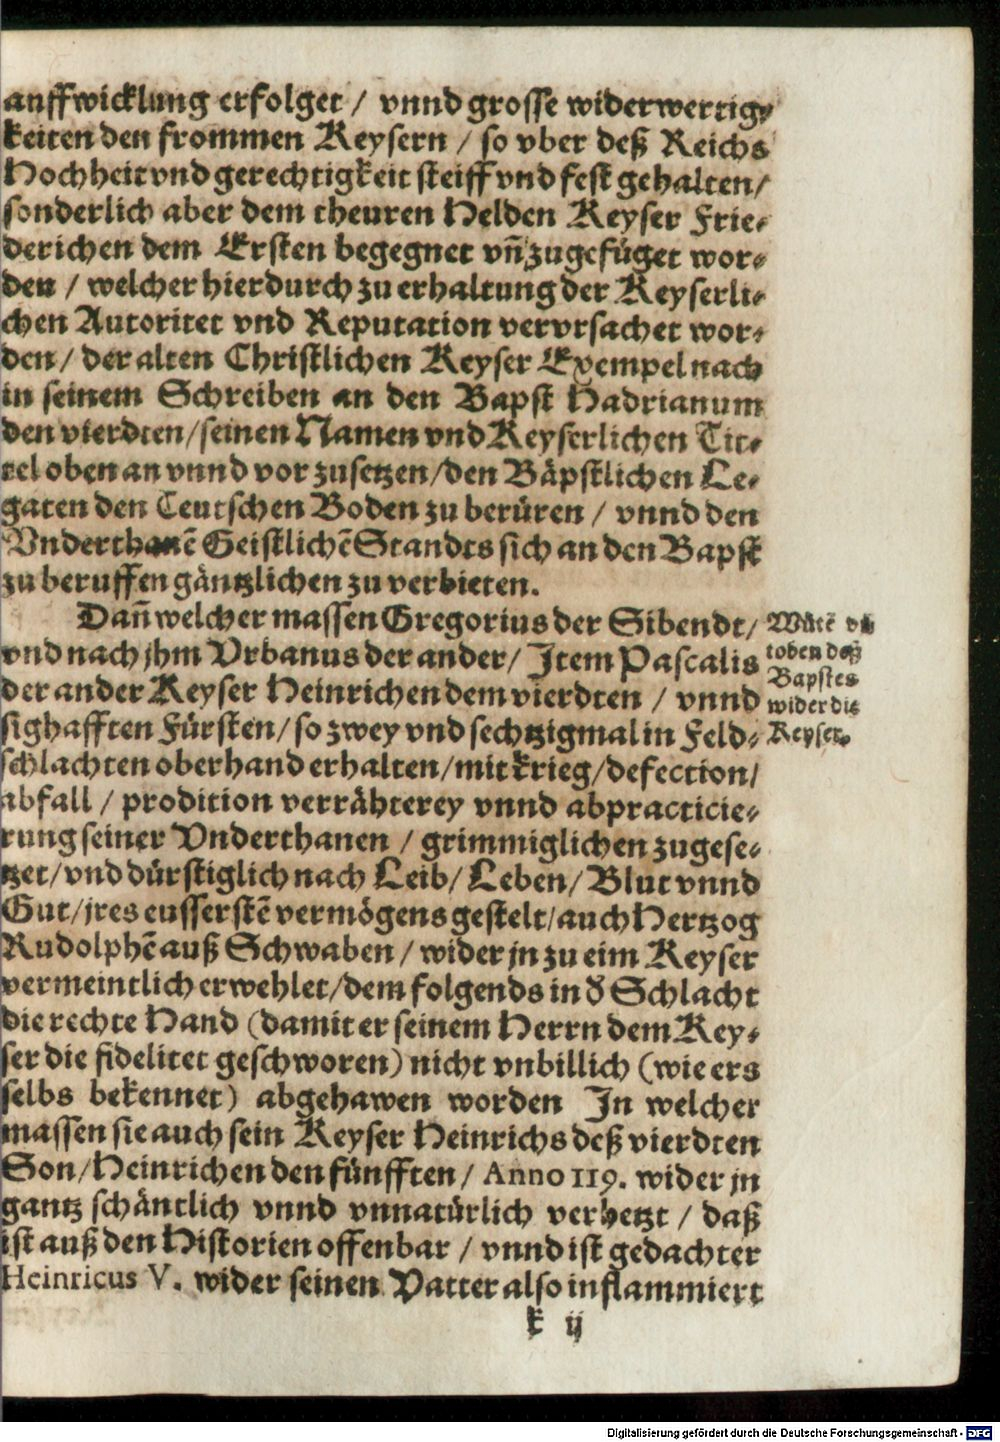 auffwicklung erfolget / vnnd grosse widerwertig⸗
keiten den frommen Keysern / so vber deß Reichs
Hochheit vnd gerechtigkeit steiff vnd fest gehalten/
sonderlich aber dem theuren Helden Keyser Frie⸗
derichen dem Ersten begegnet vñ zugefüget wor⸗
den / welcher hierdurch zu erhaltung der Keyserli⸗
chen Autoritet vnd Reputation vervrsachet wor⸗
den / der alten Christlichen Keyser Exempel nach
in seinem Schreiben an den Bapst Hadrianum
den vierdten/seinen Namen vnd Keyserlichen Tit⸗
tel oben an vnnd vor zusetzen/den Bäpstlichen Le⸗
gaten den Teutschen Boden zu berüren / vnnd den
Vnderthanẽ Geistlichẽ Standts sich an den Bapst
zu beruffen gäntzlichen zu verbieten.
Dañ welcher massen Gregorius der Sibendt/
vnd nach jhm Vrbanus der ander/ Item Pascalis
der ander Keyser Heinrichen dem vierdten / vnnd
sighafften Fürsten/ so zwey vnd sechtzigmal in Feld⸗
schlachten oberhand erhalten/mit krieg/defection/
abfall / prodition verrähterey vnnd abpracticie⸗
rung seiner Vnderthanen / grimmiglichen zugese⸗
tzet/vnd dürstiglich nach Leib/ Leben/ Blut vnnd
Gut/jres eussersten vermögens gestelt/auch Hertzog
Rudolphẽ auß Schwaben / wider jn zu eim Keyser
vermeintlich erwehlet/dem folgends in d̕ Schlacht
die rechte Hand (damit er seinem Herrn dem Key⸗
ser die fidelitet geschworen) nicht vnbillich (wie ers
selbs bekennet) abgehawen worden In welcher
massen sie auch sein Keyser Heinrichs deß vierdten
Son/Heinrichen den fünfften / Anno 119. wider jn
gantz schäntlich vnnd vnnatürlich verhetzt / daß
ist auß den Historien offenbar / vnnd ist gedachter
Heinricus V. wider seinen Vatter also inflammiert
k ij
Wütẽ vñ
toben deß
Bapstes
wider die
Keyser.
Digitalisierung gefördert durch die Deutsche Forschungsgemeinschaft - DFG